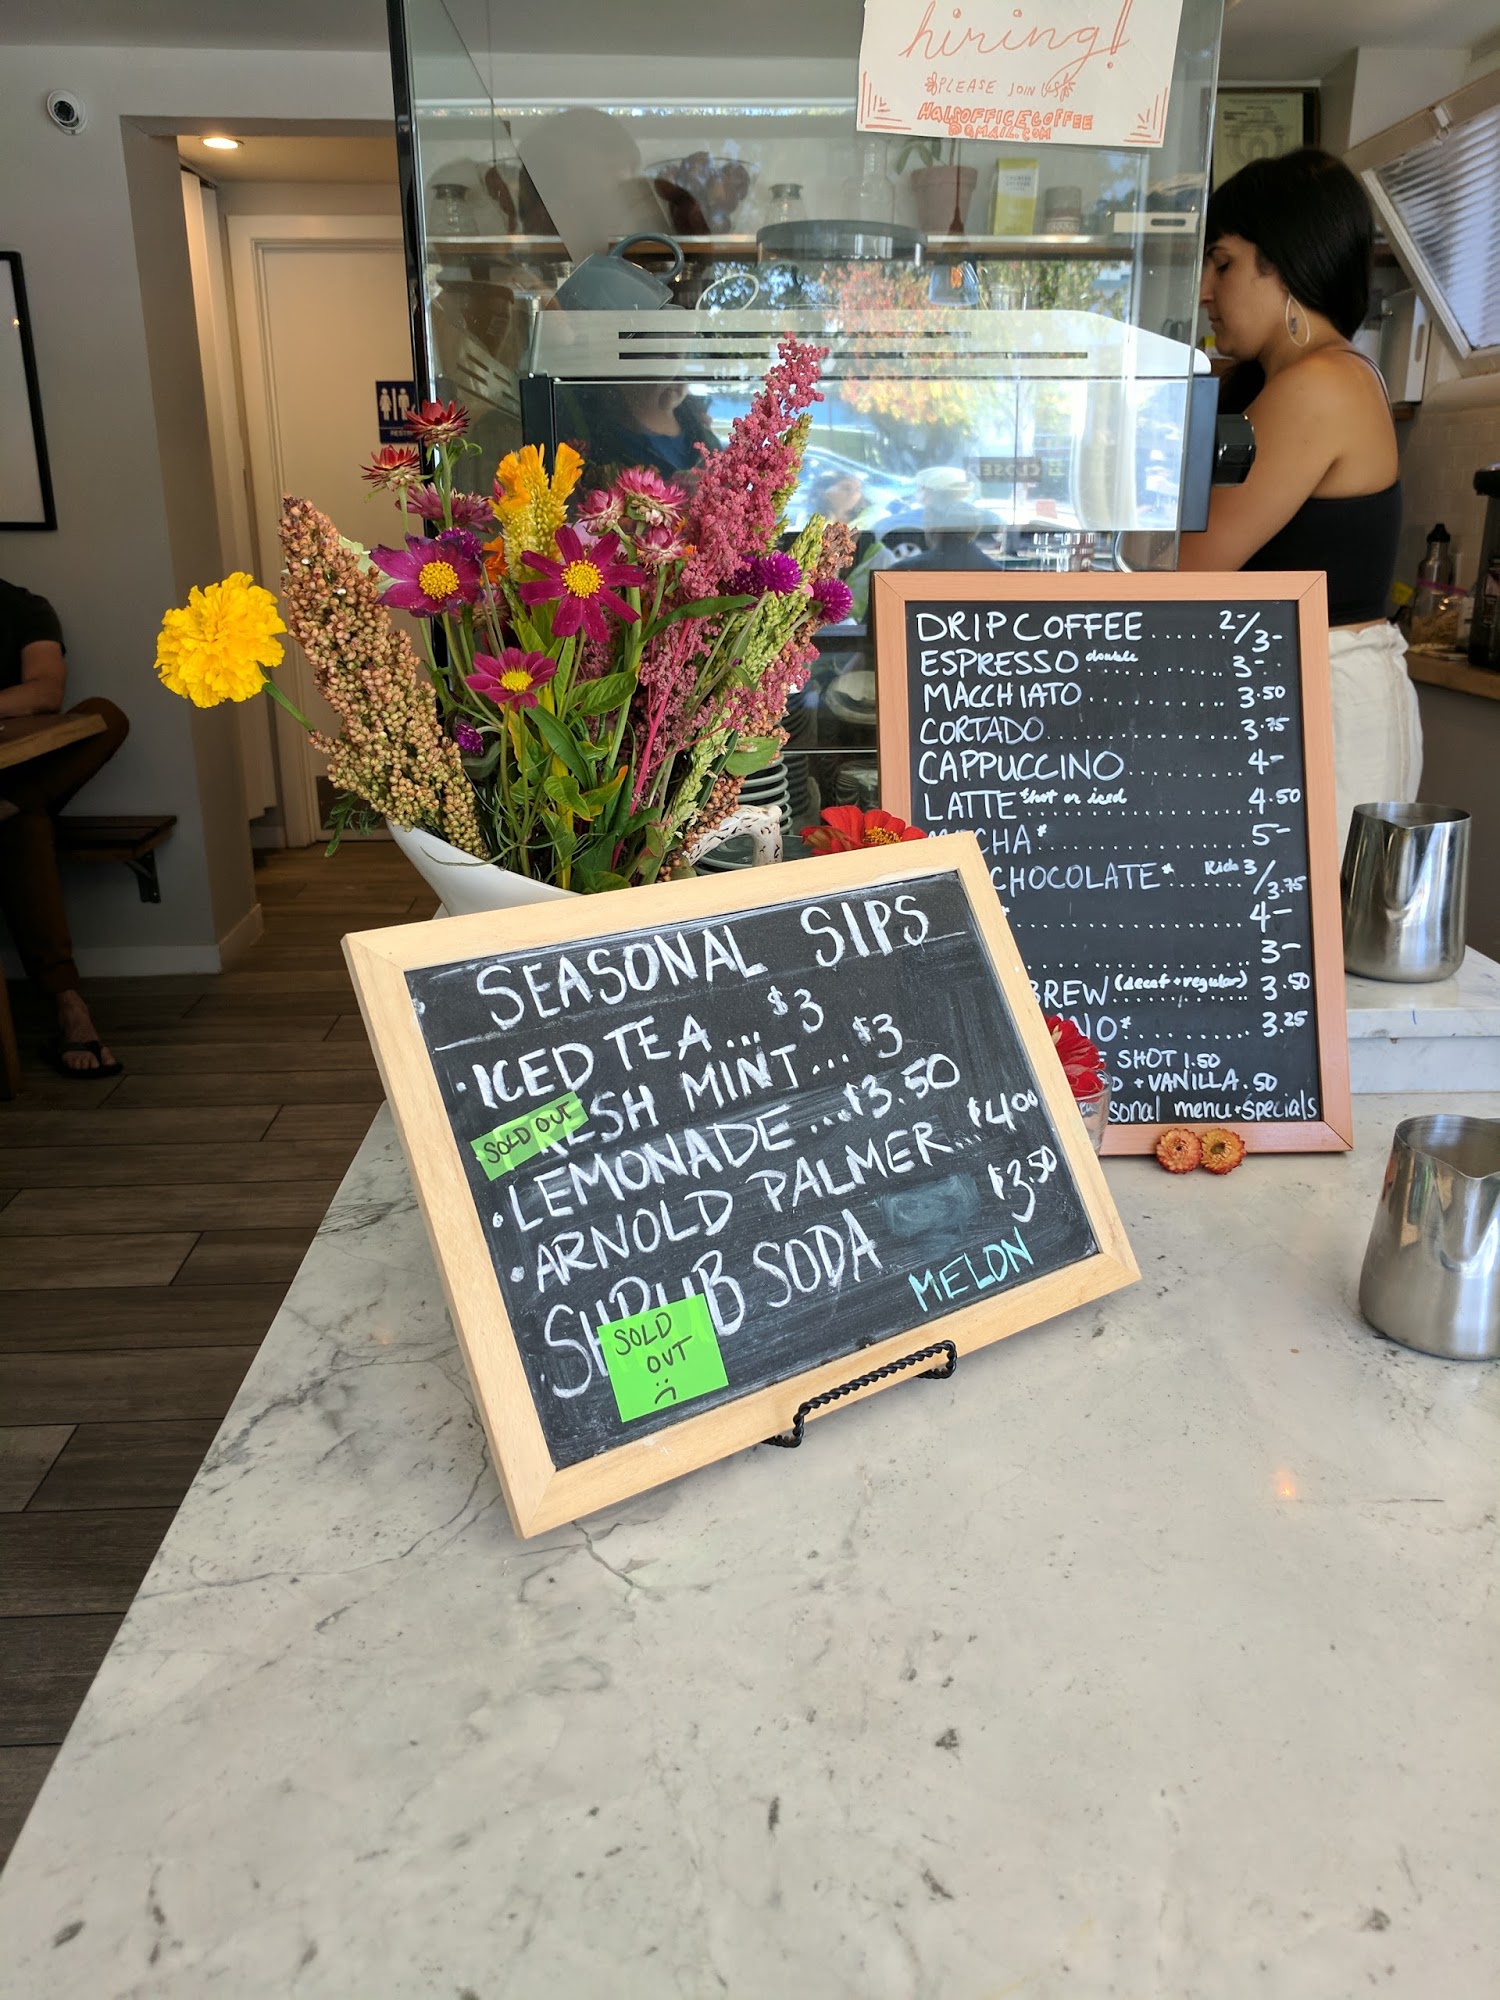 hiring!
PLEASE JOIN US
HALSOFFICECOFFEE
@GMAIL.COM
CLOSED
DRIP COFFEE ..... 2-/3-
ESPRESSO double ........ 3-
MACCHIATO .......... 3.50
CORTADO .............. 3.75
CAPPUCCINO ........ 4-
LATTE *hot or iced ......... 4.50
CHA* 5-
CHOCOLATE* ...... Kids 3/3.75
* 4-
........... 3-
BREW (decaf + regular) ............ 3.50
NO* ........ 3.25
SHOT 1.50
+ VANILLA .50
sonal menu + specials
SEASONAL SIPS
· ICED TEA ... $3
SOLD OUT
RESH MINT ... $3
· LEMONADE ... $3.50
· ARNOLD PALMER ... $4.00
· SHRUB SODA $3.50
MELON
SOLD
OUT
:(